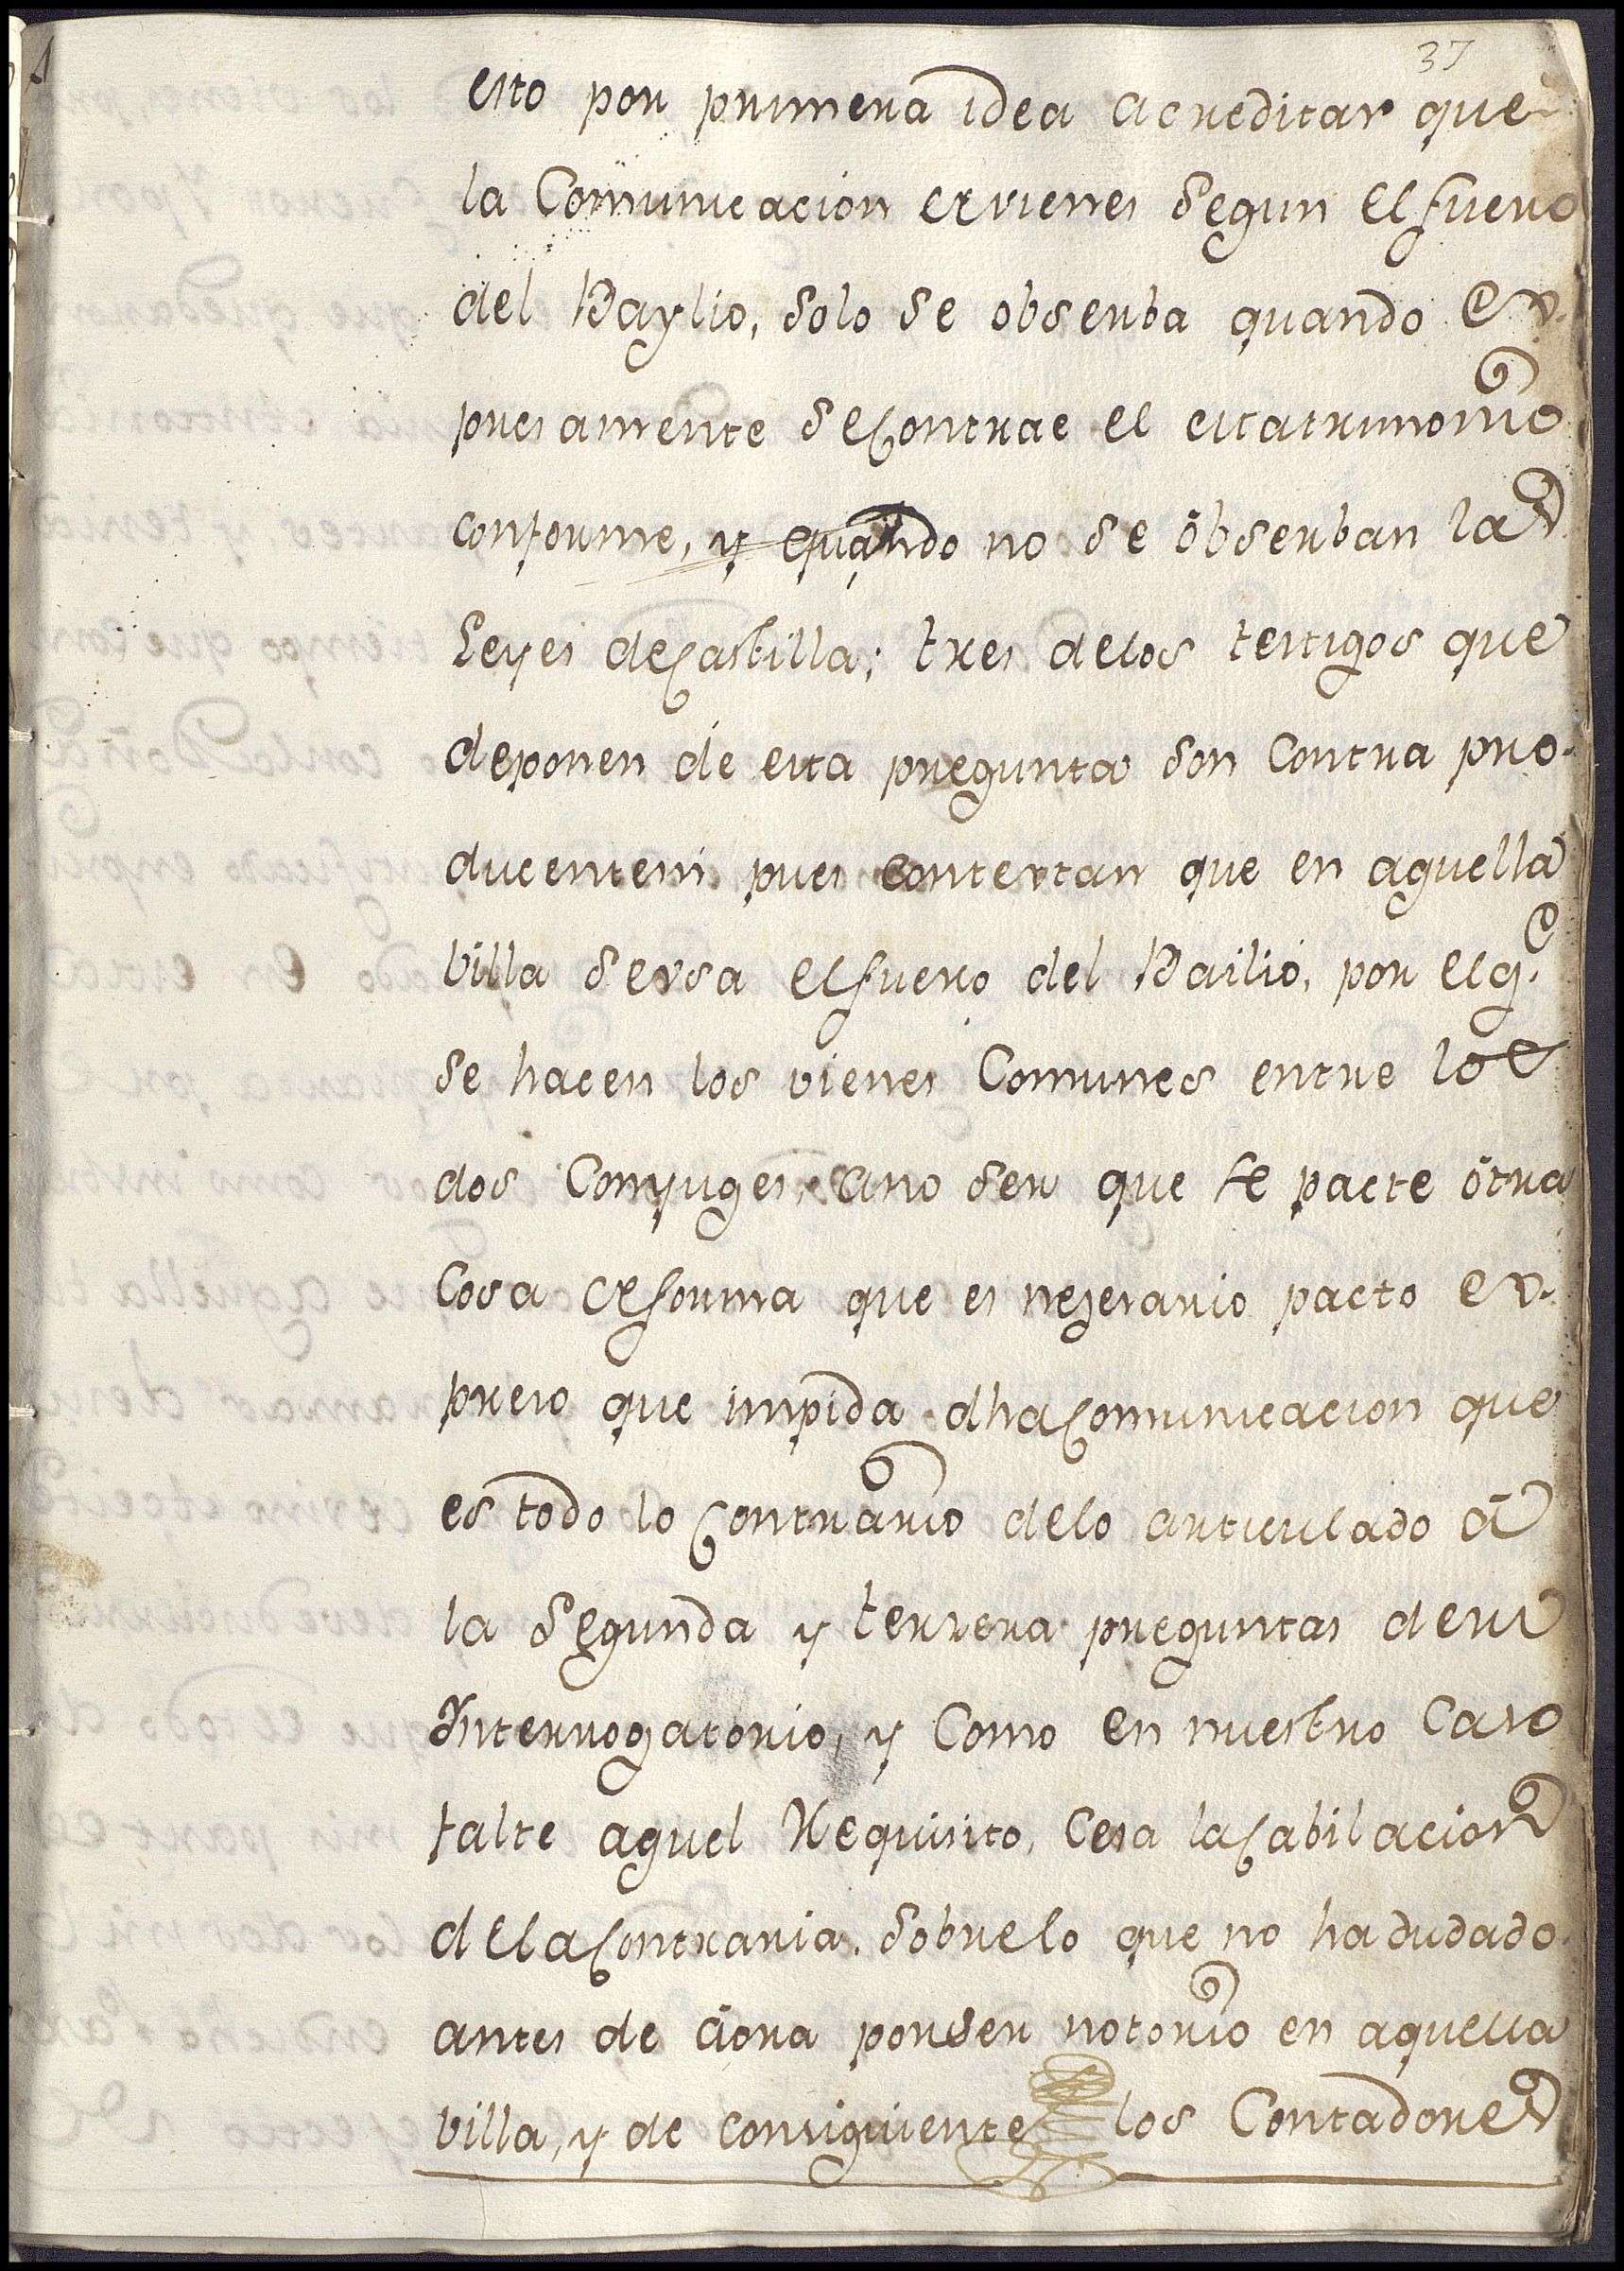 37
esto por primera idea acreditar que
la Comunicacion de vienes segun el fuero
del Baylio, solo se obserba quando ex-
presamente se contrae el matrimonio
conforme, y quando no se obserban las
Leyes de Castilla; tres de los testigos que
deponen de esta pregunta son contra pro-
ducentem pues contextan que en aquella
Villa se vsa el fuero del Bailio, por el q.e
se hacen los vienes Comunes entre los
dos Conyuges, ano ser que se pacte otra
Cosa de forma que es nezesario pacto ex-
preso que impida dha comunicacion que
es todo lo contrario delo articulado á
la segunda y terzera preguntas de su
Interrogatorio, y como en nuestro caso
falte aquel Requisito, cesa la cabilacion
dela contraria, sobre lo que no ha dudado
antes de aora por ser notorio en aquella
villa, y de consiguiente los Contadores